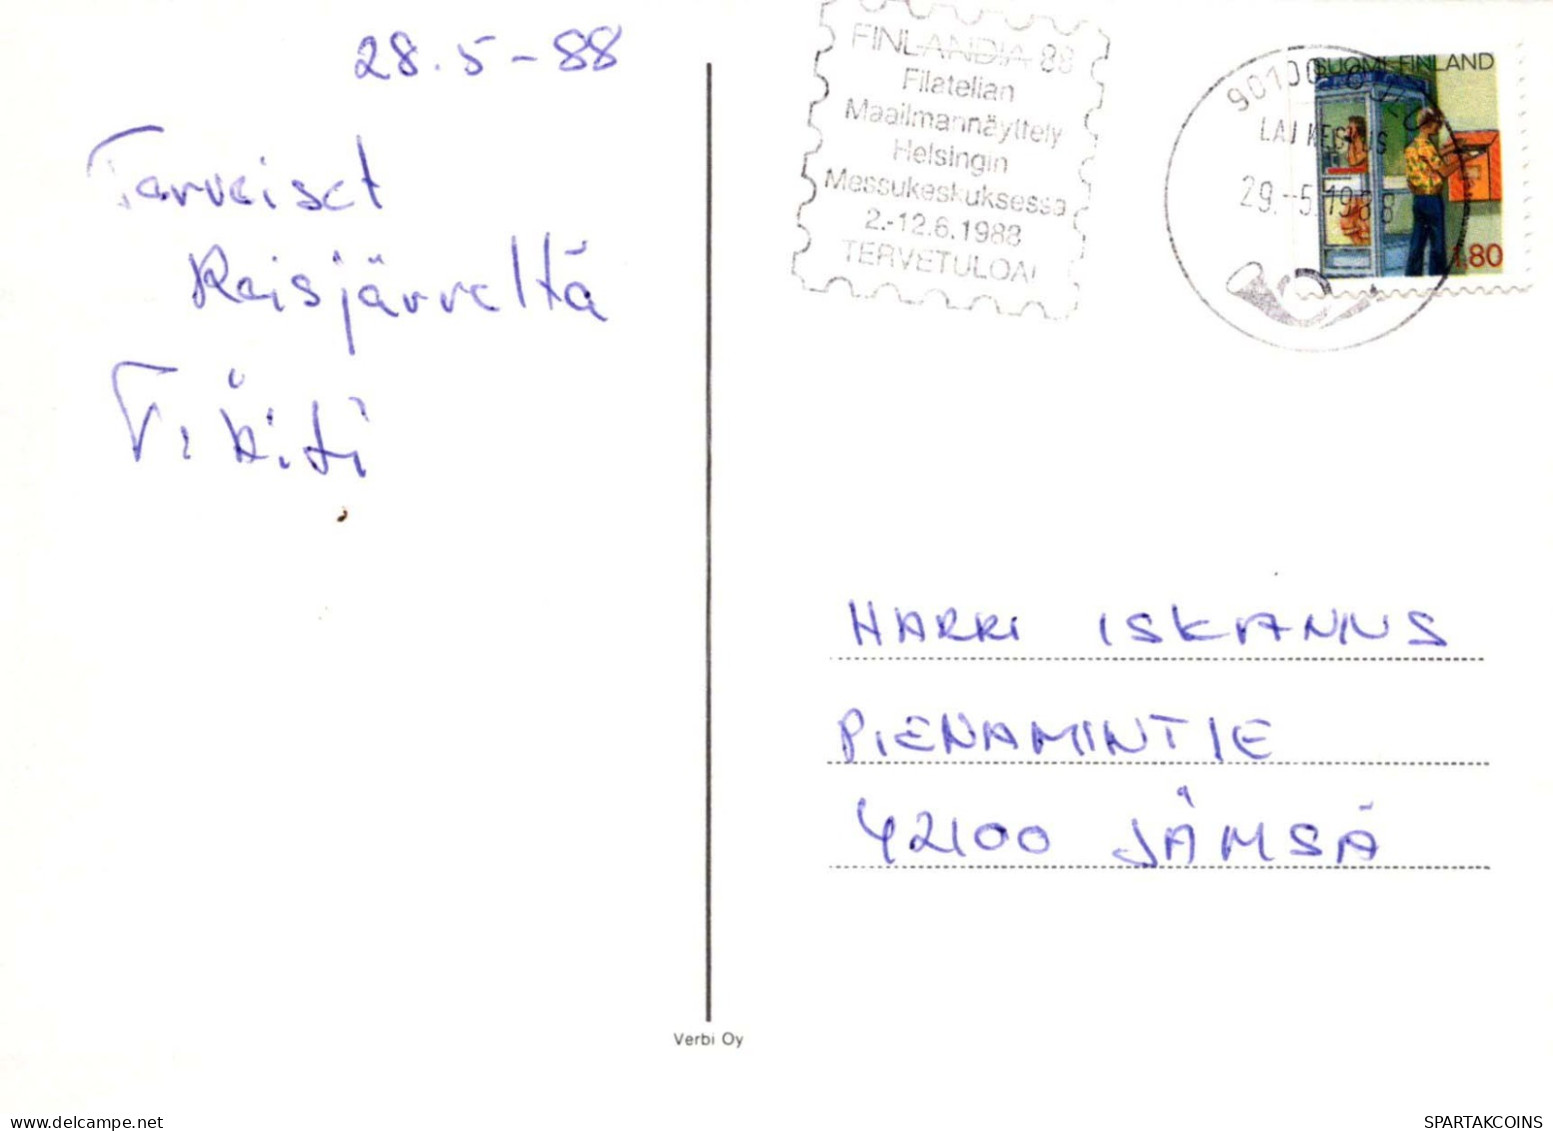 28.5-88
Terveiset
Reisjärveltä
T. Äiti
FINLANDIA 88
Filatelian
Maailmannäyttely
Helsingin
Messukeskuksessa
2.-12.6.1988
TERVETULOA!
90100 OULU
29.-5.1988
SUOMI-FINLAND
1.80
HARRI ISKANIUS
PIENAMINTIE
42100 JÄMSÄ
Verbi Oy
https://www.delcampe.net
SPARTAKCOINS